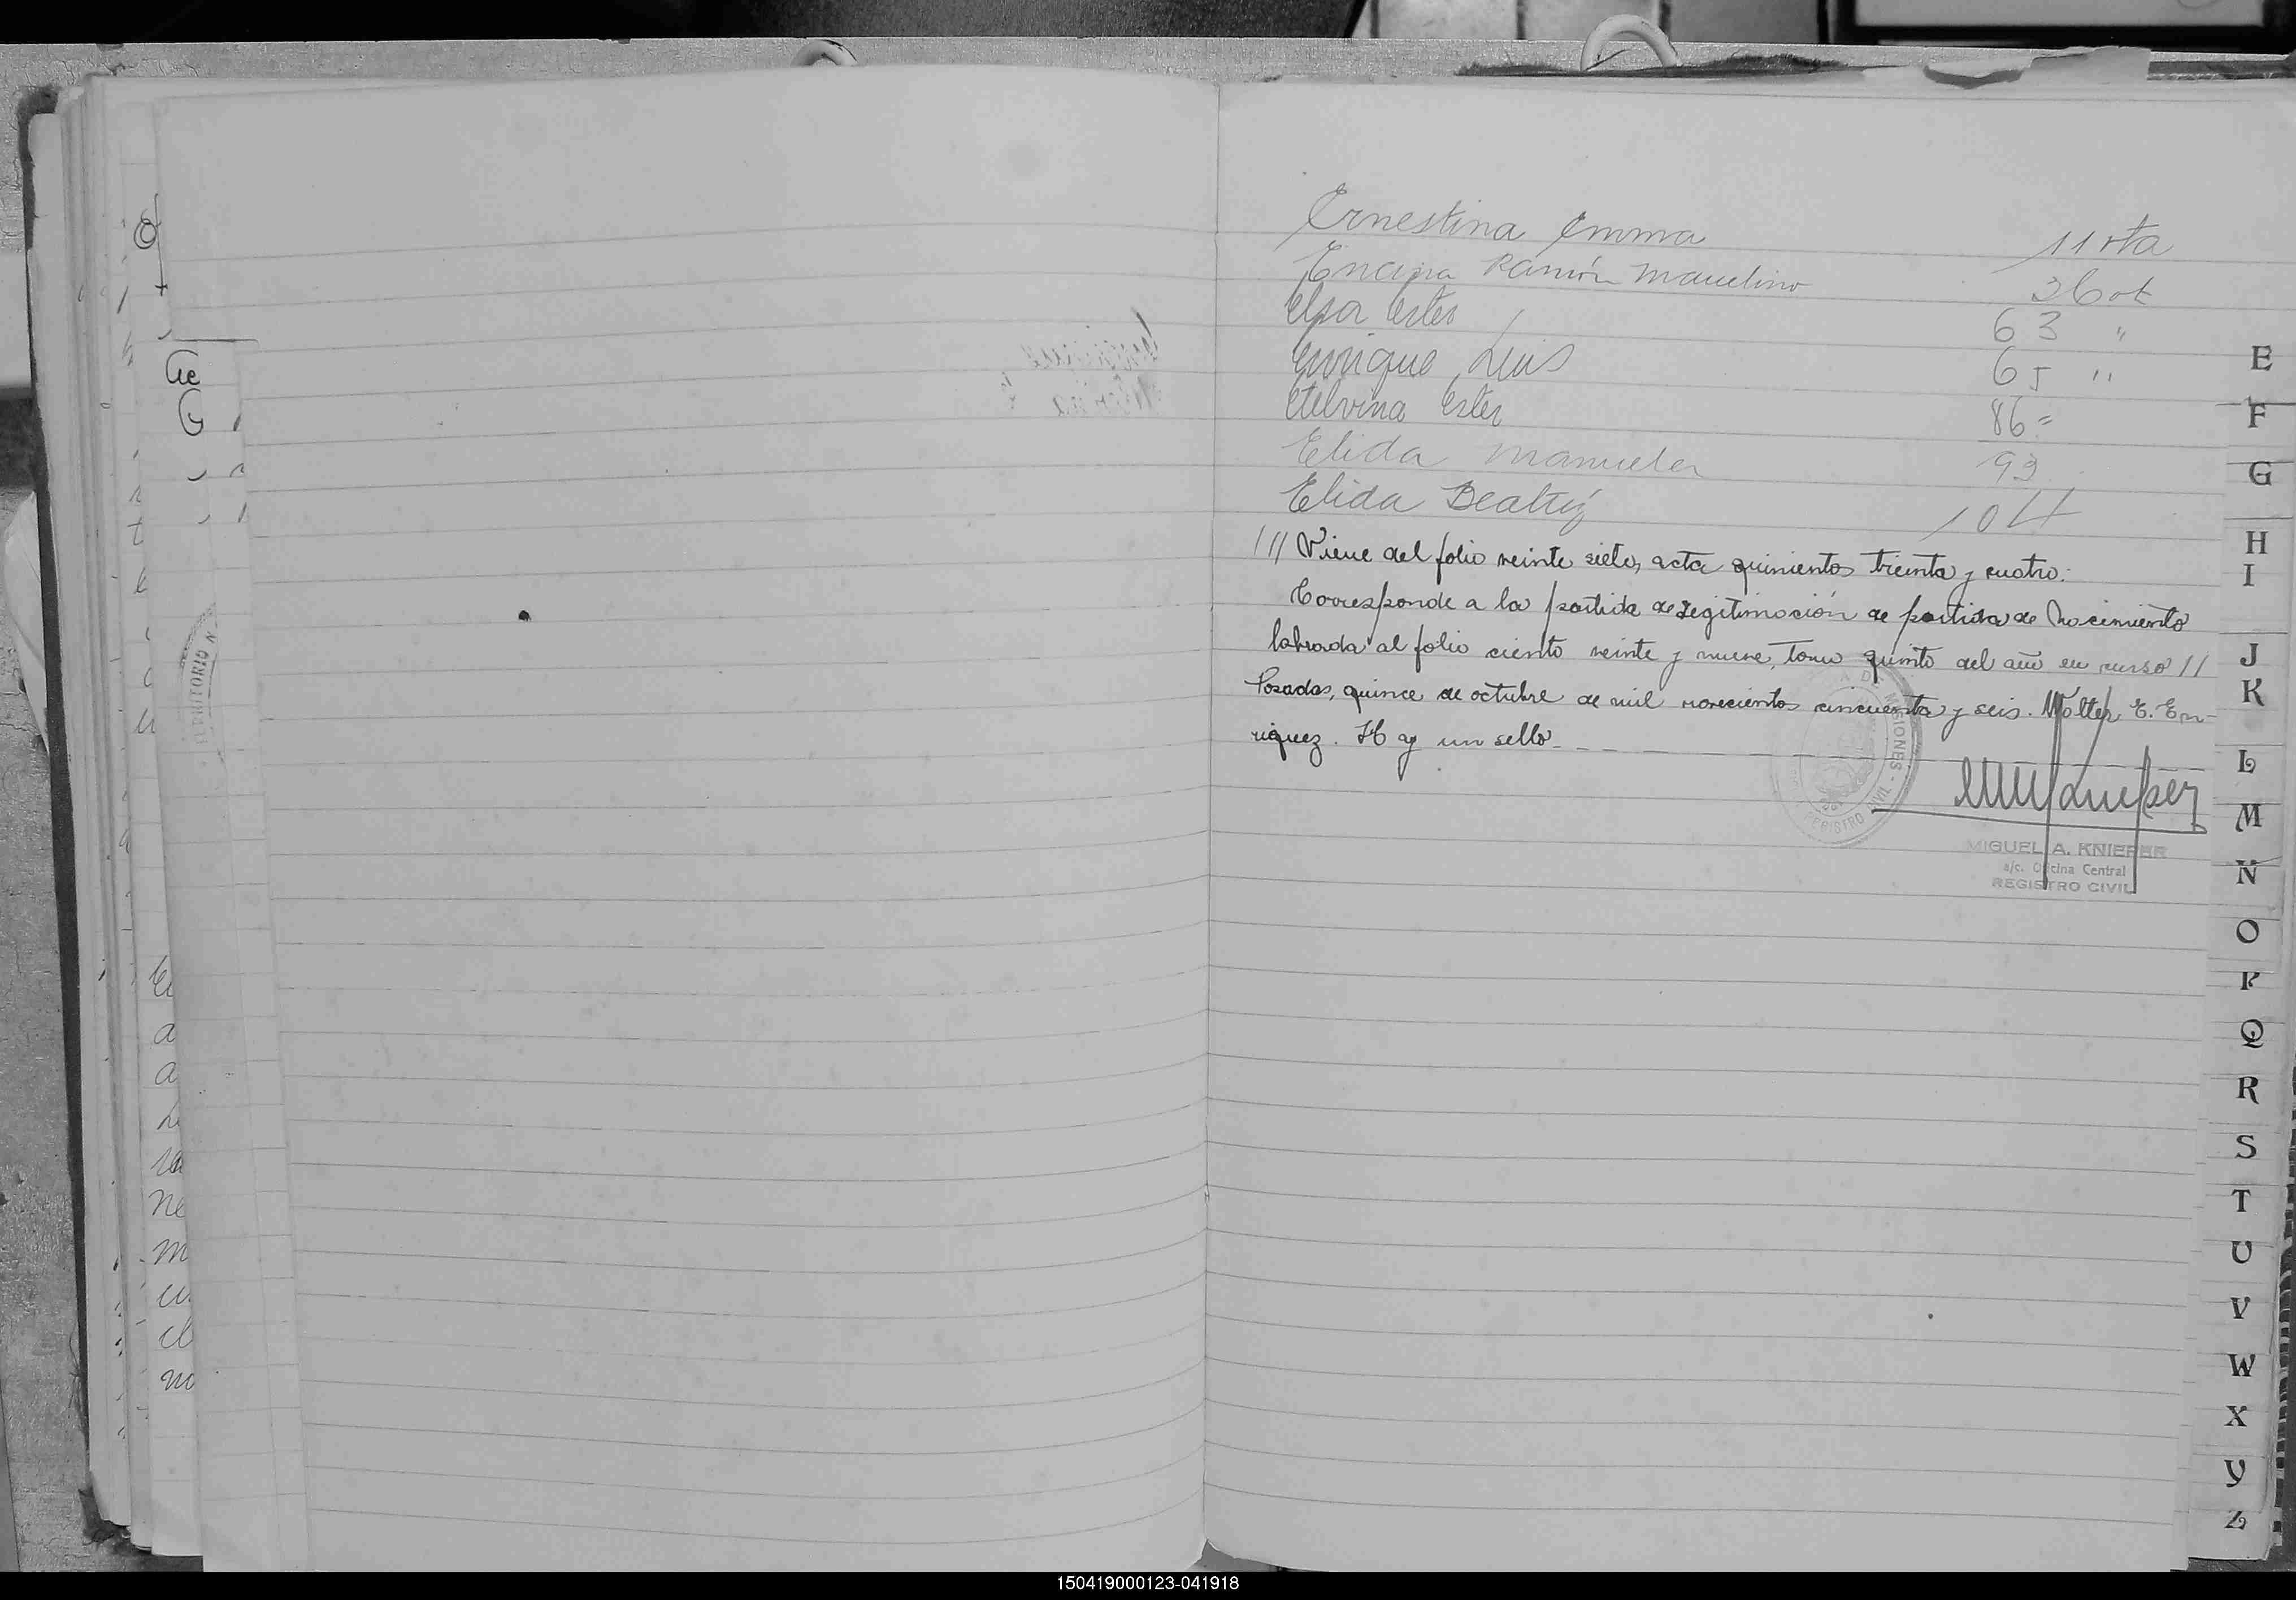 Ernestina Emma 11 vta
Encina Ramón Marcelino 36 vt
Elsa Ester 63 "
Enrique Luis 65 "
Etelvina Ester 86 =
Elida Manuela 93
Elida Beatriz 104
/// Viene del folio veinte siete, acta quinientos treinta y cuatro:
Corresponde a la partida de legitimación de partida de Nacimiento
labrada al folio ciento veinte y nueve, tomo quinto del año en curso //
Posadas, quince de octubre de mil novecientos cincuenta y seis. Walter E. En-
riquez. Hay un sello
MISIONES -
REGISTRO CIVIL
MIGUEL A. KNIEPER
a/c. Oficina Central
REGISTRO CIVIL
TERRITORIO N
E
F
G
H
I
J
K
L
M
N
O
P
Q
R
S
T
U
V
W
X
Y
Z
150419000123-041918